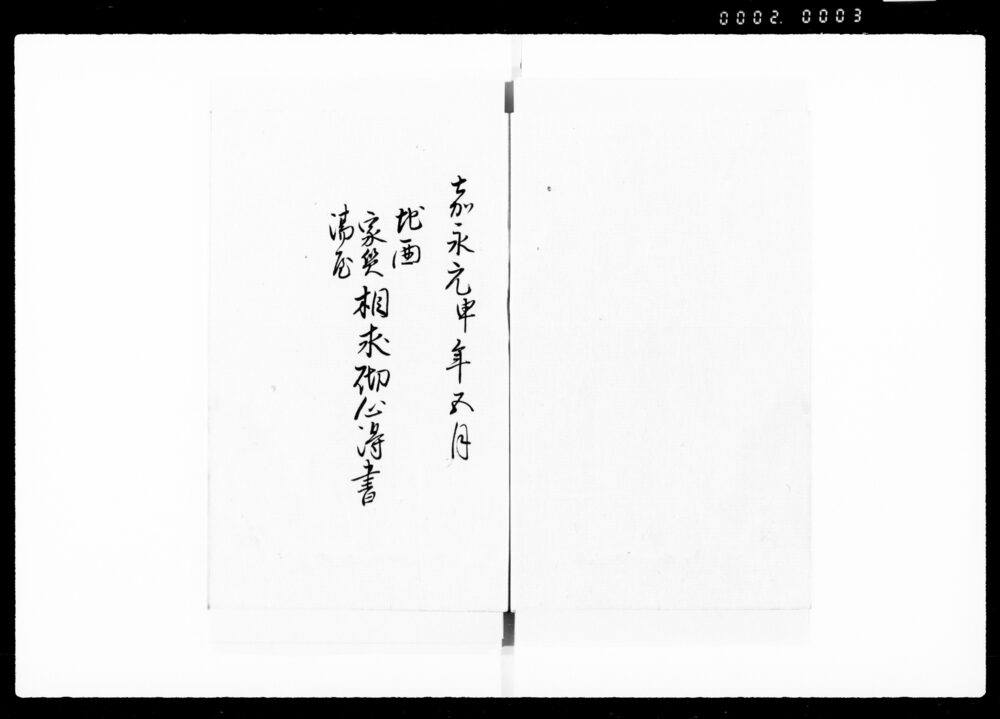 0002. 0003
嘉永元申年五月
地面
家質相求砌心得書
湯屋